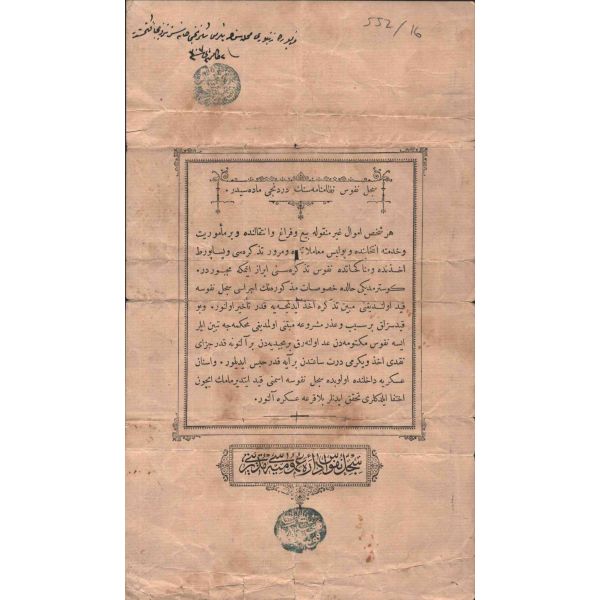 552/16
سجل نفوس نظامنامه سنك دردنجی ماده سیدر
هر شخص اموال غیر منقوله بیع و فراغ و انتقالنده و بر مأموریت
و خدمته انتخابنده و پولیس معاملاتنده و مرور تذكره سی و پساپورط
اخذنده و مناكحاتده نفوس تذكره سنی ابراز ایتمكه مجبوردر.
كوسترمدیكی حالده خصوصات مذكوره نك اجراسی سجل نفوسه
قید اولندیغنی مبین تذكره اخذ ایدنجیه قدر تأخیر اولنور. و بو
قیدسزلق بر سبب و عذر مشروعه مبتنی اولمدیغی محكمه جه تبین ایلر
ایسه نفوس مكتومه دن عد اوله رق بر مجیدیه دن بر آلتونه قدر جزای
نقدی اخذ و یكرمی درت ساعتدن بر آیه قدر حبس ایدیلور. و اسنان
عسكریه داخلنده اولوبده سجل نفوسه اسمنی قید ایتدیرمامك ایچون
اختفا ایلدكلری تحقق ایدنلر بلا قرعه عسكره آلنور.
سجل نفوس اداره عمومیه سی